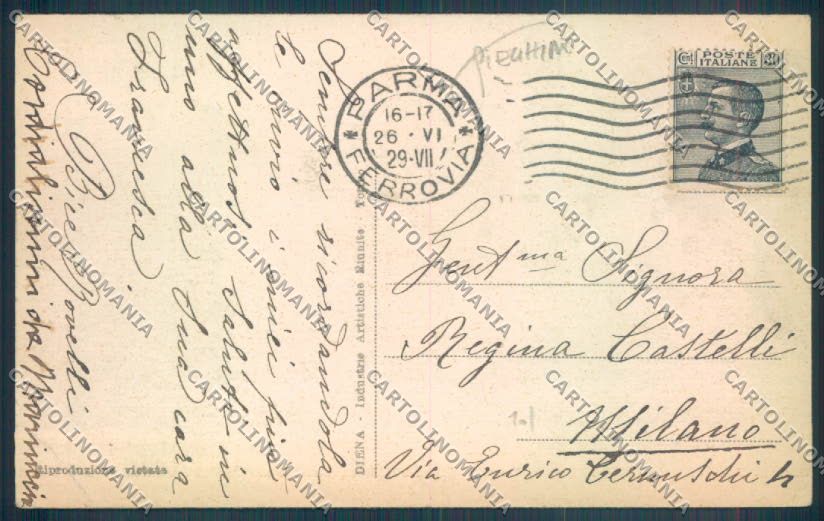 Sempre ricordandola
Le invio i miei più
affettuosi saluti in
uno alla sua cara
Francesca.
Bice Bovelli
Cordialissimi da
DIENA - Industrie Artistiche Riunite -
Riproduzione vietata
PARMA
16-17
26 · VI
29·VII
FERROVIA
POSTE
ITALIANE
Cmi 30
Gent ma Signora
Regina Castelli
Milano
Via Enrico Cernuschi 4
CARTOLINOMANIA